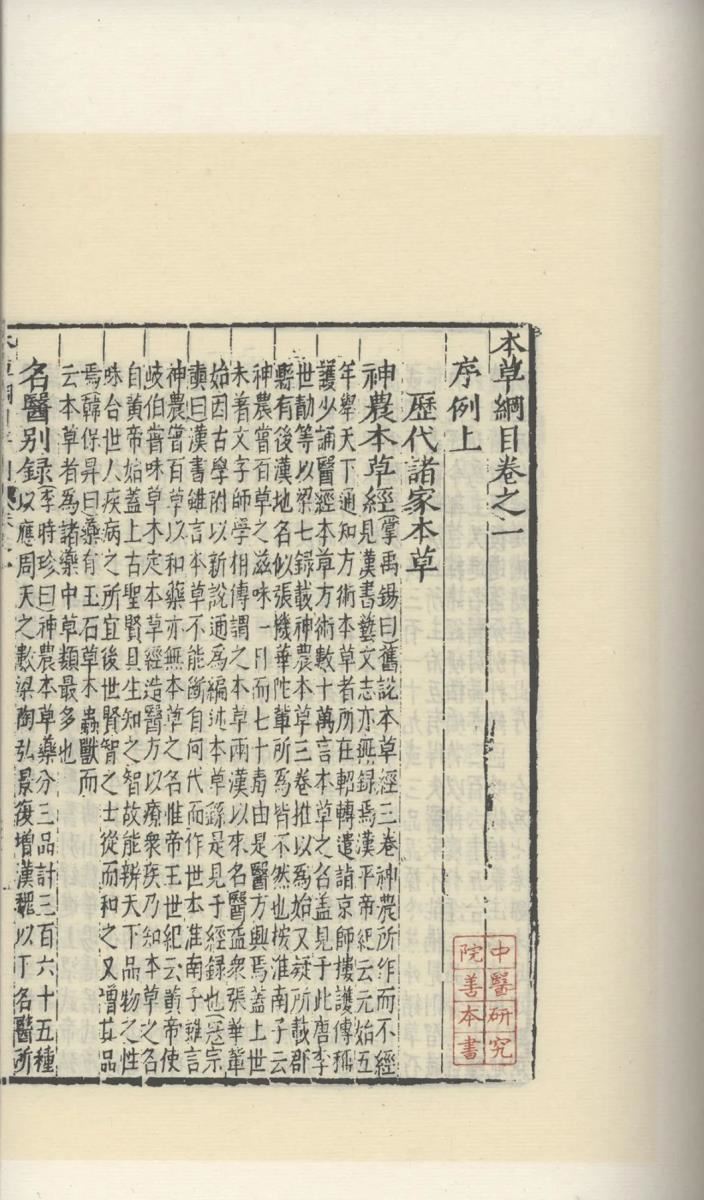 本草綱目卷之一
序例上
歷代諸家本草
神農本草經掌禹錫曰舊說本草經三卷神農所作而不經
見漢書藝文志亦無錄焉漢平帝紀云元始五
年舉天下通知方術本草者所在軺轉遣詣京師樓護傳稱
護少誦醫經本草方術數十萬言本草之名蓋見于此唐李
世勣等以梁七錄載神農本草三卷推以為始又疑所載郡
縣有後漢地名似張機華陀輩所為皆不然也按淮南子云
神農嘗百草之滋味一日而七十毒由是醫方興焉蓋上世
未著文字師學相傳謂之本草兩漢以來名醫益衆張華輩
始因古學附以新說通為編述本草繇是見于經錄也宼宗
奭曰漢書雖言本草不能斷自何代而作世本淮南子雖言
神農嘗百草以和藥亦無本草之名惟帝王世紀云黃帝使
岐伯嘗味草木定本草經造醫方以療衆疾乃知本草之名
自黃帝始蓋上古聖賢具生知之智故能辨天下品物之性
味合世人疾病之所宜後世賢智之士從而和之又增其品
焉韓保昇曰藥有玉石草木蟲獸而
云本草者為諸藥中草類最多也
名醫别録李時珍曰神農本草藥分三品計三百六十五種
以應周天之數梁陶弘景復增漢魏以下名醫所
中醫研究
院善本書